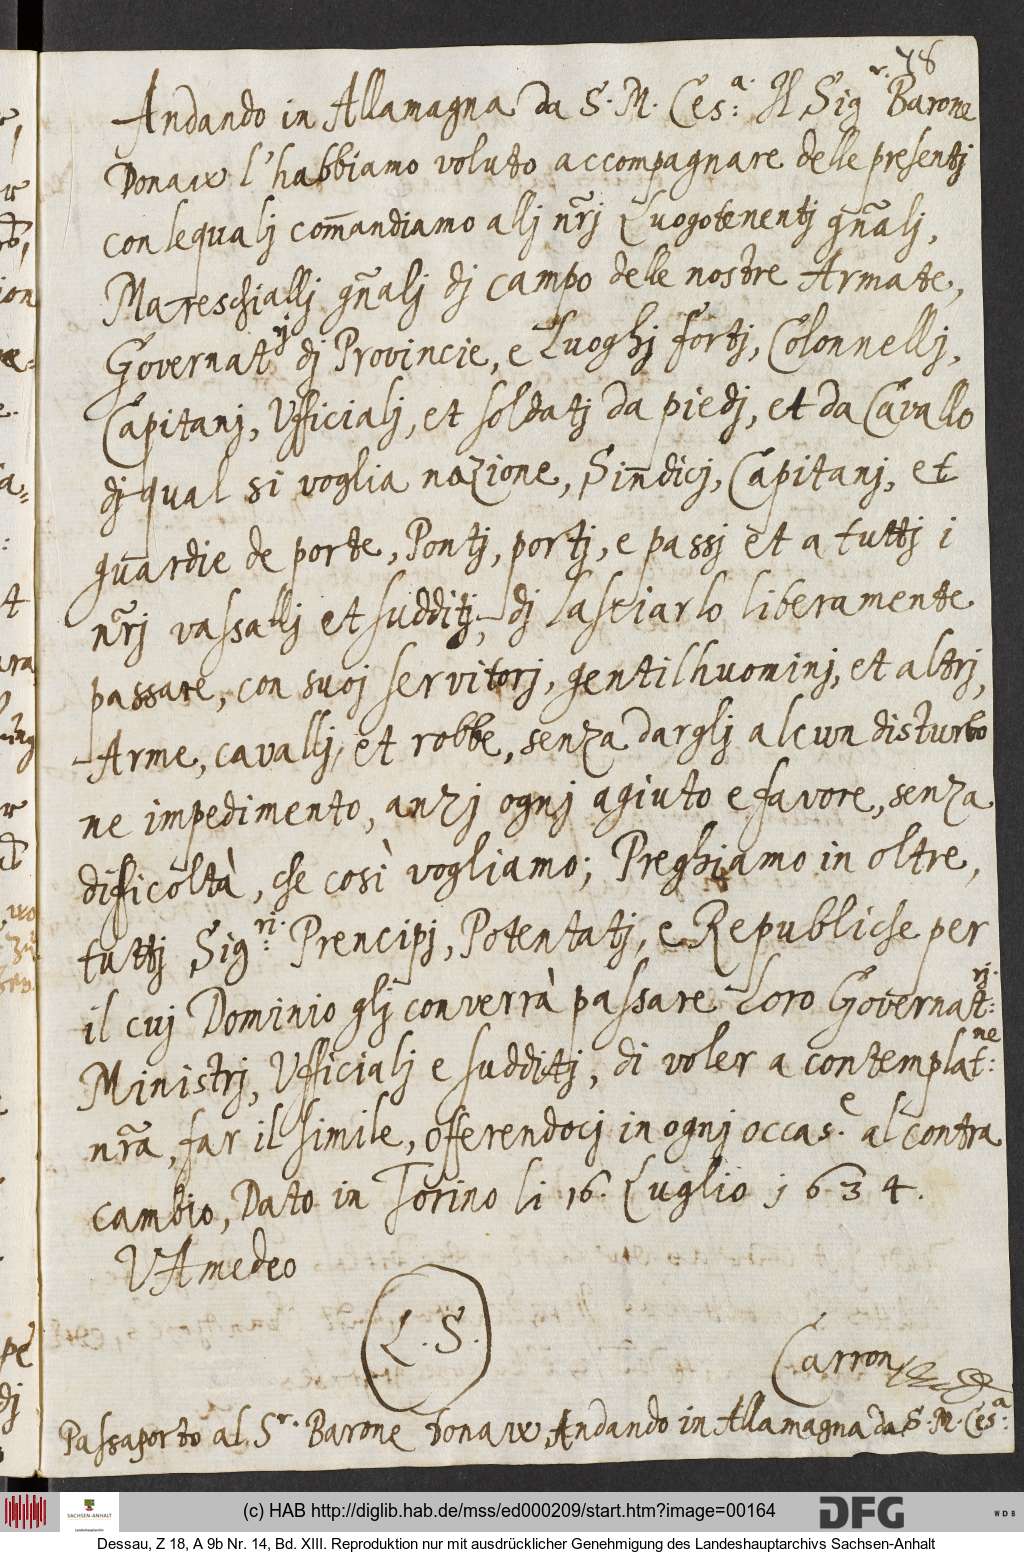 78
Andando in Allamagna da S. M. Ces:ª Il Sigʳ Barone
Donaix l'habbiamo voluto accompagnare delle presentj
con lequalj com̅andiamo allj nr̃j Luogotenentj gñalj,
Mareschiallj gñalj dj campo delle nostre Armate,
Governatʳʲ dj Provincie, e Luoghj fortj, Colonnellj,
Capitanj, Ufficialj, et soldatj da piedj, et da Cavallo
dj qual si voglia nazione, Sindicj, Capitanj, et
guardie de porte, Pontj, portj, e passj et a tuttj i
nr̃j vassallj et sudditj, dj lasciarlo liberamente
passare, con suoj servitorj, gentilhuominj, et altrj,
Arme, cavallj, et robbe, senza darglj alcun disturbo
ne impedimento, anzj ognj agiuto e favore, senza
difficoltà, che così vogliamo; Preghiamo in oltre,
tuttj Sig:ʳⁱ Prencipj, Potentatj, e Republiche per
il cuj Dominio glj converrà passare Loro Governat:ʳʲ
Ministrj, Ufficialj e sudditj, di voler a contemplat:ⁿᵉ
nr̃a, far il simile, offerendocj in ognj occas.ᵉ al contra
cambio, Dato in Torino li 16. Luglio 1634.
V Amedeo
L. S.
Carron
Passaporto al Sʳ. Barone Donaix Andando in Allamagna da S. M. Ces:ª
(c) HAB http://diglib.hab.de/mss/ed000209/start.htm?image=00164
SACHSEN-ANHALT
DFG
WDB
Dessau, Z 18, A 9b Nr. 14, Bd. XIII. Reproduktion nur mit ausdrücklicher Genehmigung des Landeshauptarchivs Sachsen-Anhalt